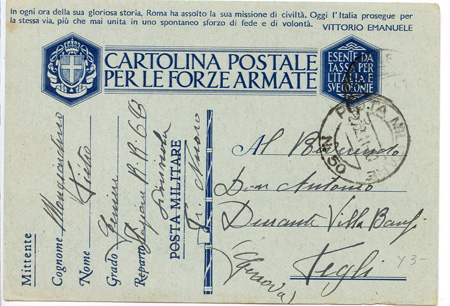 In ogni ora della sua gloriosa storia, Roma ha assolto la sua missione di civiltà. Oggi l'Italia prosegue per
la stessa via, più che mai unita in uno spontaneo sforzo di fede e di volontà. VITTORIO EMANUELE
CARTOLINA POSTALE
PER LE FORZE ARMATE
ESENTE DA
TASSA PER
L'ITALIA E
SVE COLONIE
POSTA MIL
N. 50
Mittente
Cognome
Nome Pietro
Grado Geniere
Reparto
POSTA MILITARE
Al Reverendo
Don Antonio
Durante Villa Banfi
Pegli
(Genova)